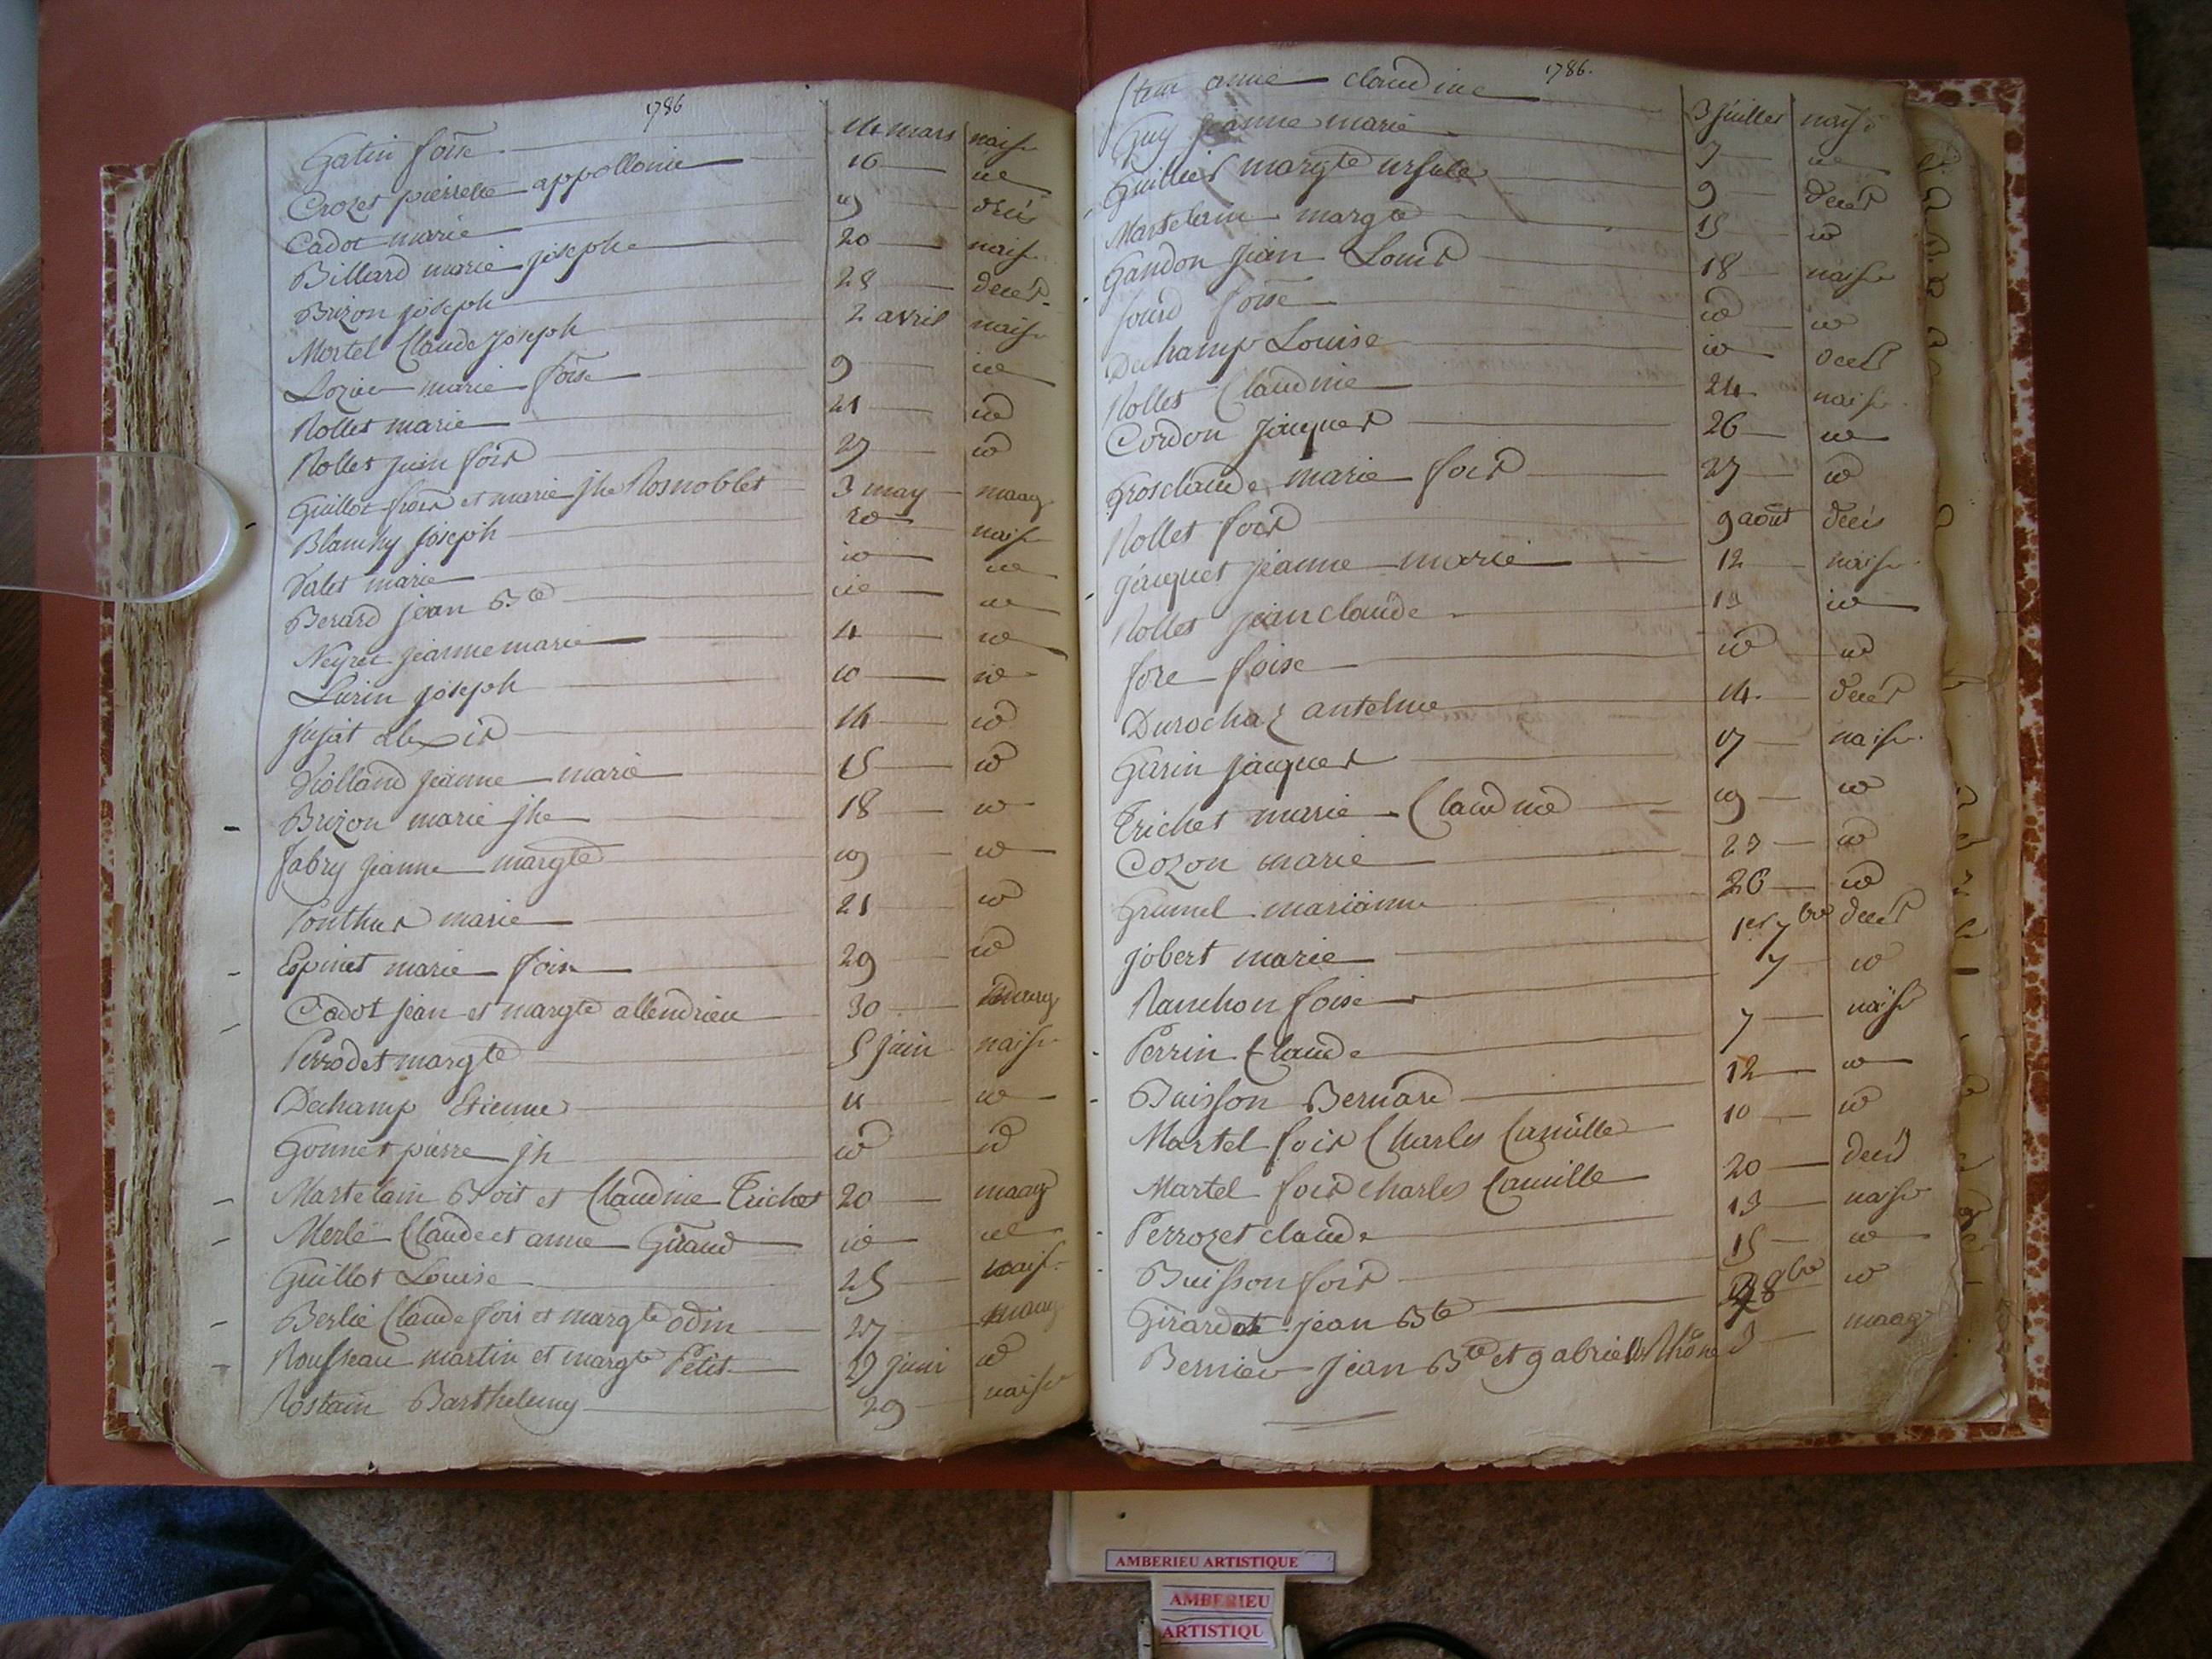 1786
Gatin foise 14 mars naisse
Crozet pierrette appollonie 16 id
Cadot marie 19 décès
Billard marie josephe 20 naisse
Brizon joseph 28 décès
Mortel Claude joseph 2 avril naisse
Lozier marie foise 9 id
Rollet marie 21 id
Rollet jean fois 27 id
Guillot frois et marie jhe Rosnoblet 3 may maag
Blanchy joseph naisse
Valet marie id id
Berard jean Bte id id
Neyret jeanne marie 4 id
Lurin joseph 10 id
Jujat alexis 14 id
Violland jeanne marie 15 id
Brizon marie jhe 18 id
fabry jeanne margte 19 id
Ponthus marie 21 id
Espinet marie fois 29 id
Cadot jean et margte allendrieu 30 maag
Perrodet margte 5 juin naisse
Dechamp Etienne 11 id
Gonnet pierre jh id id
Martelain Boit et Claudine Trichet 20 maag
Merle Claude et anne Giraud id id
Guillot Louise 25 naisse
Berlie Claude fois et margte odin 27 maag
Rousseau martin et margte Petit 27 juin id
Rostain Barthelemy 29 naisse
1786.
anne claudine 3 juillet naisse
Guy jeanne marie 7 id
Guillier margte ursule 9 décès
Martelain margte 15 id
Gandon jean Louis 18 naisse
foise id id
Duchamp Louise id décès
Rollet Claudine 24 naisse
Cordon jacques 26 id
Grosclaude marie fois 27 id
Rollet fois 9 août décès
jacquet jeanne marie 12 naisse
Rollet jean claude 13 id
fore foise id id
Durochaz antelme 14. décès
Garin jacques 17 naisse
Trichet marie Claudine 19 id
Cozon marie 23 id
Grumel marianne 26 id
jobert marie 1er 7bre décès
Ranchon foise 7 id
Perrin Claude 7 naisse
Buisson Bernard 12 id
Martel fois Charles Camille 10 id
Martel fois charles Camille 20 décès
Perrozet claude 13 naisse
Buisson fois 15 id
Girardot jean Bte 8bre id
Bernier jean Bte et gabrielle Rhône 3 maag
AMBERIEU ARTISTIQUE
AMBERIEU
ARTISTIQU